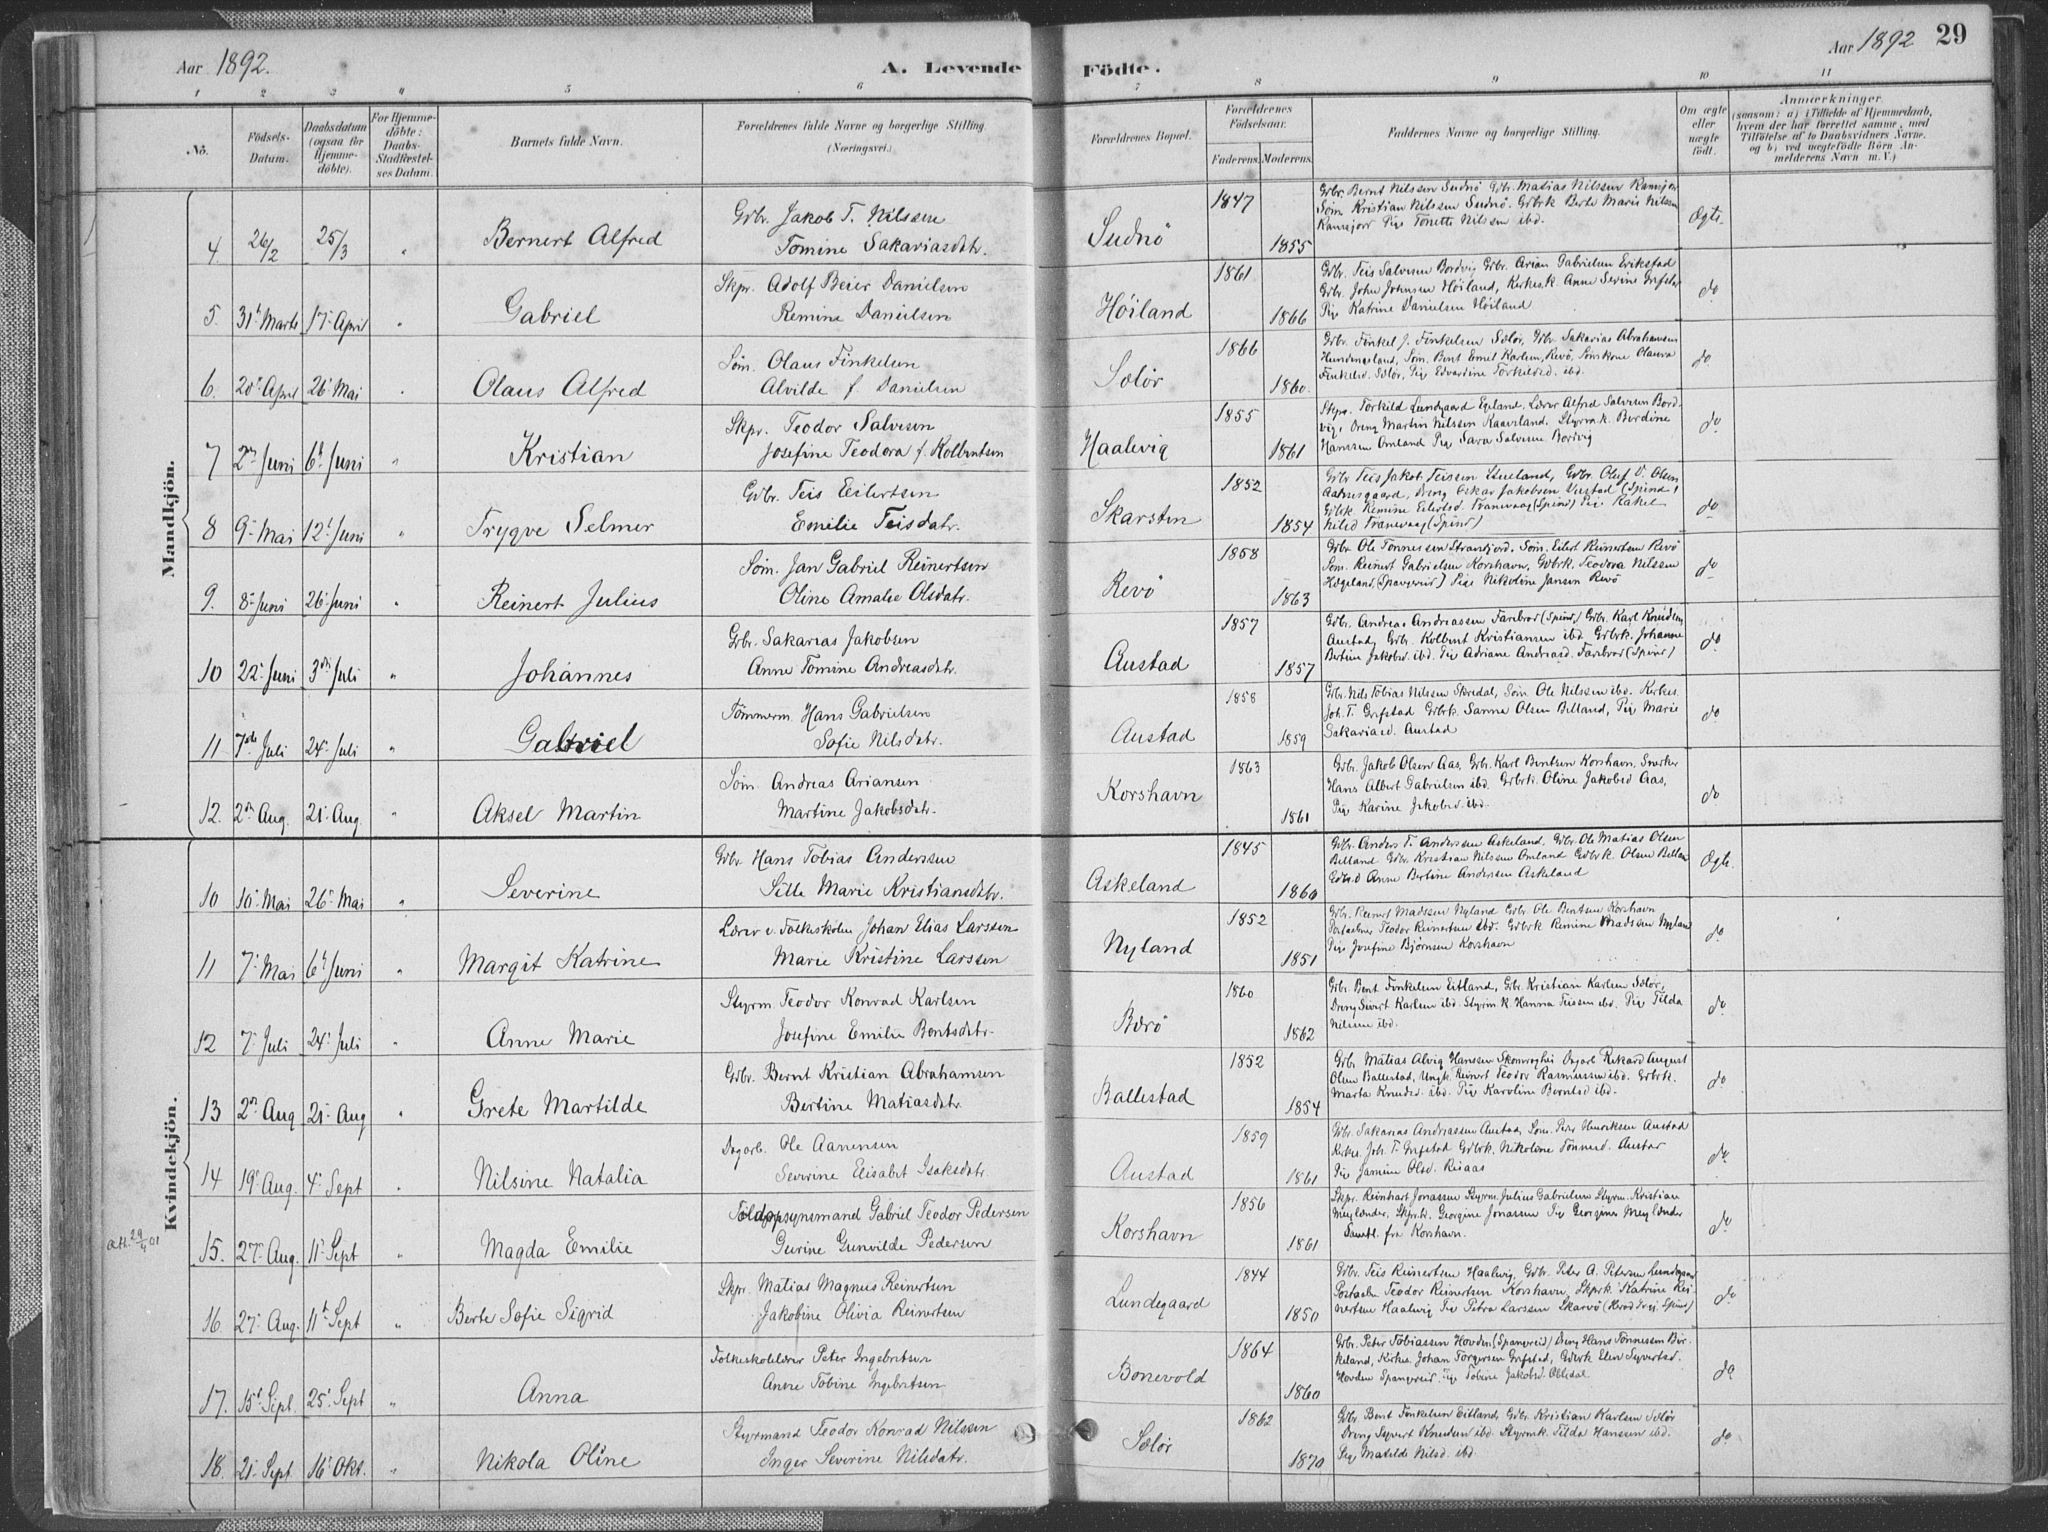 Aar 1892. A. Levende Födte. Aar 1892 29
1 2 3 4 5 6 7 8 9 10 11
No. Födsels-Datum. Daabsdatum (ogsaa for Hjemmedöbte). For Hjemmedöbte: Daabs-Stadfæstelses Datum. Barnets fulde Navn. Forældrenes fulde Navne og borgerlige Stilling (Næringsvei.) Forældrenes Bopæl. Forældrenes Födselsaar. Faderens. Moderens. Faddernes Navne og borgerlige Stilling. Om ægte eller uægte födt. Anmærkninger (saasom: a) i Tilfælde af Hjemmedaab, hvem der har forrettet samme, med Tilföielse af to Daabsvidners Navne. og b) ved uægtefödte Börn Anmelderens Navn m. V.)
Mandkjön.
4. 26/2 25/3 " Bernert Alfred
Grbr. Jakob T. Nilssen
Tomine Sakariasdtr.
Sudnö 1847 1855
Grbr. Bernt Nilssen Sudnö Grbr. Matias Nilssen
Söm. Kristian Nilssen Sudnö. Grbrk Berte Marie Nilssen
Pige Tonette Nilssen ibd.
Ægte
5. 31t Marts 17t April " Gabriel
Skpr. Adolf Beier Danielsen
Remine Danielsen
Höiland 1861 1866
Grbr. Teis Salvesen Bordvig Grbr. Arian Gabrielsen Erikstad
Grbr. John Johnsen Höiland, Kirkes.k. Anne Sevine Grefstad
Pige Katrine Danielsen Höiland
do
6. 20de April 26t Mai " Olaus Alfred
Söm. Olaus Finkelsen
Alvilde f. Danielsen
Sælör 1866 1860.
Grbr. Finkel J. Finkelsen Sælör, Grbr. Sakarias Abrahamsen
Söm. Bent Emil Karlsen, Revö, Sömskone Olaura
Finkelsd. Sælör, Pige Edvardine Torkildsd. ibd.
do
7 2den Juni 6t Juni " Kristian
Skpr. Teodor Salvesen
Josefine Teodora f. Kolbentsen
Haalevig 1855 1861
Skpr. Torkild Lundegaard Egeland, Lærer Alfred Salvesen Bordvig, Dreng Martin Nilssen Kaaveland. Styrm.k. Berdine
Hanssen Omland Pige Sara Salvesen Bordvig
do
8 9t Mai 12t Juni " Trygve Selmer
Grbr. Teis Eilertsen
Emilie Teisdatr.
Skarsten 1852 1854
Grbr Teis Jakob Teissen Grbr. Oluf V. Olsen
Dreng Oskar Jakobsen Vestad (Spind)
Grbrk. Remine Eilertsd. Tranevaag (Spind) Pige Rakel
Nilsd Tranevaag (Spind)
do
9. 8t Juni 26t Juni " Reinert Julius
Söm. Jan Gabriel Reinertsen
Oline Amalie Olsdatr.
Revö 1858 1863
Grbr Ole Tönnessen Strandfjord. Söm. Eilert Reinertsen Revö
Söm. Reinert Gabrielsen Korshavn, Grbrk. Teodora Nilssen
Hægeland (Spangereid) Pige Nikoline Jansen Revö
do
10 22t Juni 3die Juli " Johannes
Grbr. Sakarias Jakobsen
Anne Tomine Andreasdtr.
Austad 1857 1857
Grbr. Andreas Andreassen Farebrot (Spind) Grbr. Karl Knudsen
Austad, Grbr. Kolbent Kristiansen ibd Grbrk. Johanne
Bertine Jakobsd. ibd. Pige Adriane Andreasd. Farebrot (Spind)
do
11 7de Juli 24t Juli " Gabriel
Tömmerm. Hans Gabrielsen
Sofie Nilsdatr.
Austad 1858 1859
Grbr. Nils Tobias Nilssen Skredal, Söm. Ole Nilssen ibd. Kirkes.
Joh. T. Grefstad Grbrk. Sanne Olsen Belland, Pige Marie
Sakariasd. Austad
do
12. 2den Aug. 21t Aug. " Aksel Martin
Söm. Andreas Ariansen
Martine Jakobsdatr.
Korshavn 1863 1861
Grbr. Jakob Olsen Aas, Grbr. Karl Bentsen Korshavn. Snekker
Hans Albert Gabrielsen ibd. Grbrk. Oline Jakobsd Aas,
Pige Karine Jakobsd ibd.
do
Kvindekjön.
10 10t Mai 26t Mai " Severine
Grbr. Hans Tobias Andersen
Sille Marie Kristiansdtr.
Askeland 1845 1860
Grbr. Anders T. Anderssen Askeland. Grbr. Ole Matias Olsen
Belland Grbr. Kristian Nilssen Omland Grbrk. Olsen Belland
Anne Bertine Andersen Askeland
Ægte.
11 7t Mai 6t Juni " Margit Katrine
Lærer v. Folkeskolen Johan Elias Larssen
Marie Kristine Larssen
Nyland 1852 1851
Grbr. Reinert Madssen Nyland Grbr Ole Bentsen Korshavn
Postaabner Teodor Reinertsen ibd. Grbrk Remine Madssen Nyland
Pige Josefine Björnsen Korshavn
do
12 7t Juli 24t Juli " Anne Marie
Styrm. Teodor Konrad Karlsen
Josefine Emilie Bentsdtr.
Berö 1860 1862
Grbr. Bent Finkelsen Eitland, Grbr. Kristian Karlsen Sælör,
Dreng Sivert Karlsen ibd. Styrm k. Hanna Teissen ibd. Pige Tilda
Nilsen ibd.
do
13 2den Aug 21t Aug " Grete Martilde
Grbr. Bernt Kristian Abrahamsen
Bertine Matiasdtr.
Ballestad 1852 1854
Grbr Matias Alvig Hanssen Dagarb Rikard August
Olsen Ballestad, Ungk. Reinert Teodor Rasmussen ibd. Grbrk.
Marta Knudsd. ibd. Pige Karoline Berntsd ibd.
do
14 19t Aug. 4t Sept " Nilsine Natalia
Dagarb. Ole Aanensen
Severine Elisabet Isaksdatr.
Austad 1859 1861
Grbr. Sakarias Andreassen Austad, Söm. Peter Henriksen Austad
Kirkes. Joh. T. Grefstad Grbrk. Nikoline Tönnesd. Austad
Pige Jamine Olsd. Risaas
do
att. 29/4 01
15. 27t Aug. 11t Sept " Magda Emilie
Toldopsynsmand Gabriel Teodor Pedersen
Gurine Gunvilde Pedersen
Korshavn 1856 1861
Skpr. Reinhart Jonassen Styrm. Julius Gabrielsen Styrm. Kristian
Meylænder, Skpr.k. Georgine Jonassen Pige Georgine Meylænder
Samtl. fra Korshavn.
do
16. 27t Aug. 11t Sept " Berte Sofie Sigrid
Skpr. Matias Magnus Reinertsen
Jakobine Olivia Reinertsen
Lundegaard 1844 1850
Grbr. Teis Reinertsen Haalevig, Grbr. Peter A. Petersen Lundegaard
Postaabn Teodor Reinertsen Korshavn, Skprk Katrine Reinertsen Haalevig Pige Petra Larssen Skarvö
do
17. 15t Sept. 25t Sept " Anna
Folkeskolelærer Peter Ingebretsen
Anne Tobine Ingebretsen
Bonevold 1864 1860
Grbr. Peter Tobiassen Hovden (Spangereid) Dreng Hans Tönnessen Birkeland, Kirkes. Johan Torgersen Grefstad, Grbrk Elen Syvertsd.
Hovden Spangereid. Pige Tobine Jakobsd. Obledal
do
18. 21t Sept. 16t Okt. " Nikola Oline
Styrmand Teodor Konrad Nilssen
Inger Severine Nilsdatr.
Sælör 1862 1870
Grbr. Bent Finkelsen Eitland, Grbr. Kristian Karlsen Sælör
Dreng Syvert Knudsen ibd. Styrmk. Tilda Hanssen ibd.
Pige Matilde Nilsd. ibd.
do